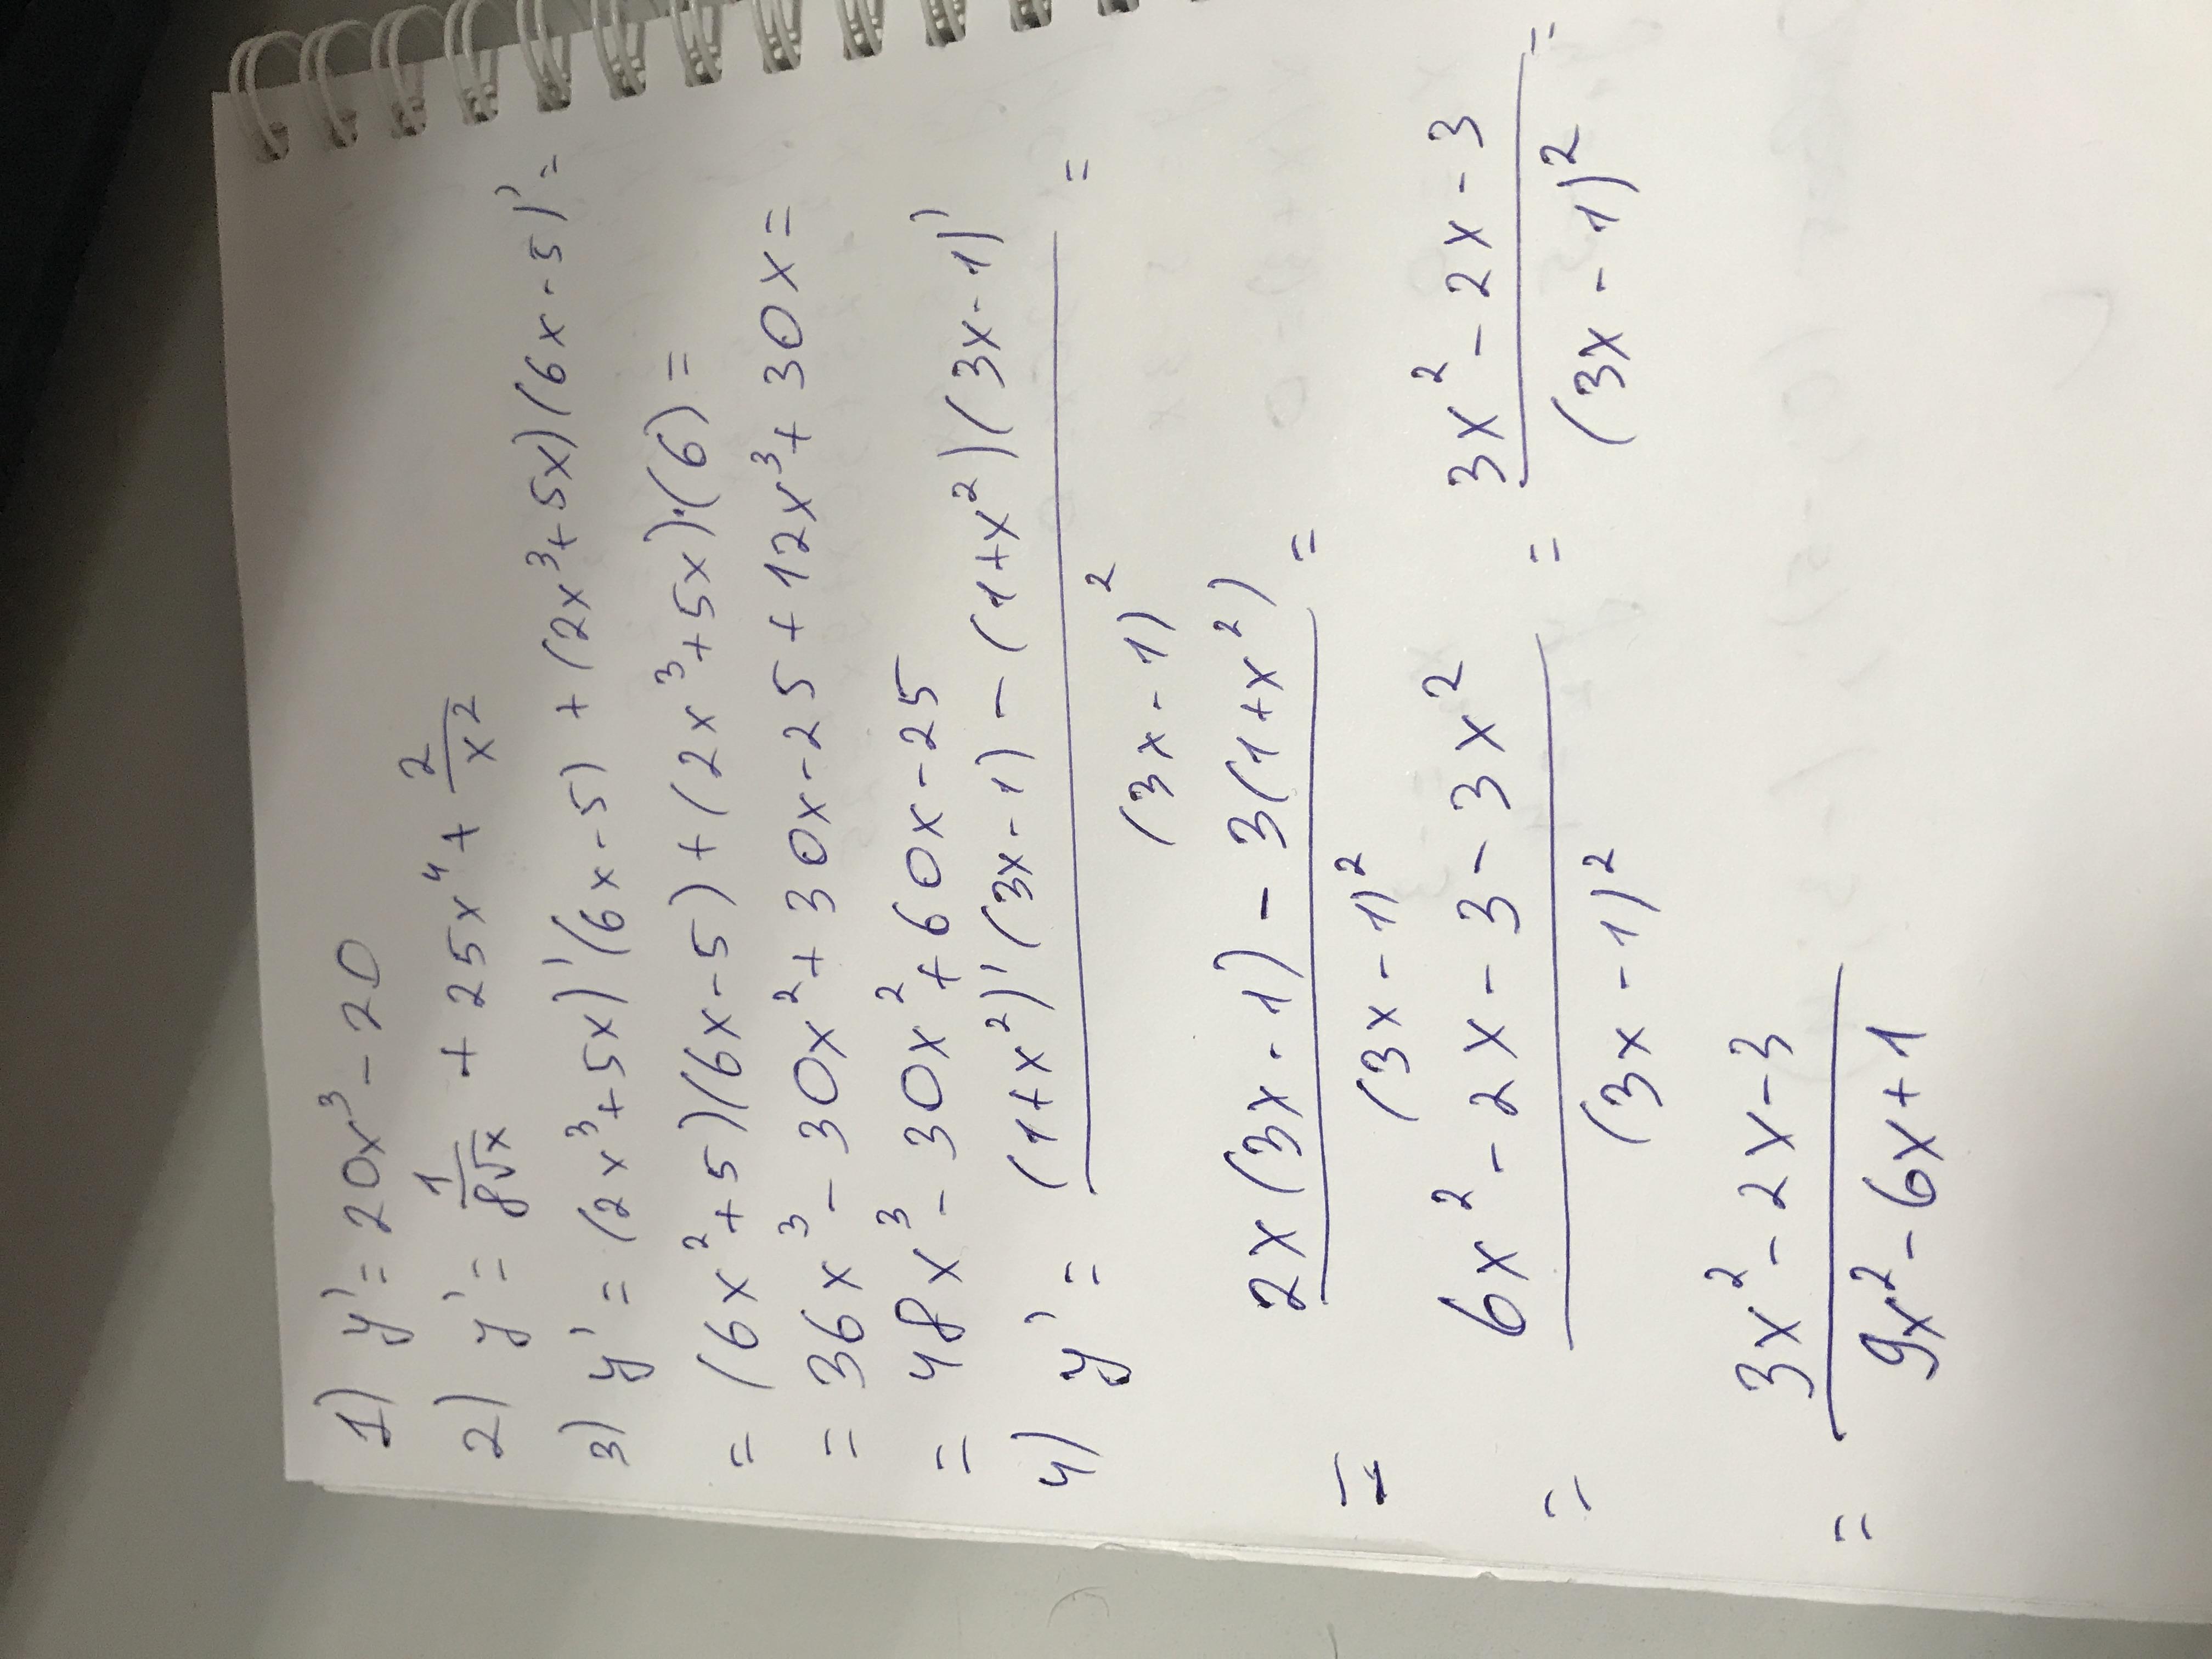 1) y' = 20x³ - 20
2) y' = 1/(8√x) + 25x⁴ + 2/x²
3) y' = (2x³+5x)'(6x-5) + (2x³+5x)(6x-5)' =
= (6x²+5)(6x-5)+(2x³+5x)·(6) =
= 36x³ - 30x² + 30x - 25 + 12x³ + 30x =
= 48x³ - 30x² + 60x - 25
4) y' = ((1+x²)'(3x-1) - (1+x²)(3x-1)')/(3x-1)² =
= (2x(3x-1) - 3(1+x²))/(3x-1)² =
= (6x² - 2x - 3 - 3x²)/(3x-1)² = (3x² - 2x - 3)/(3x-1)² =
= (3x² - 2x - 3)/(9x² - 6x + 1)